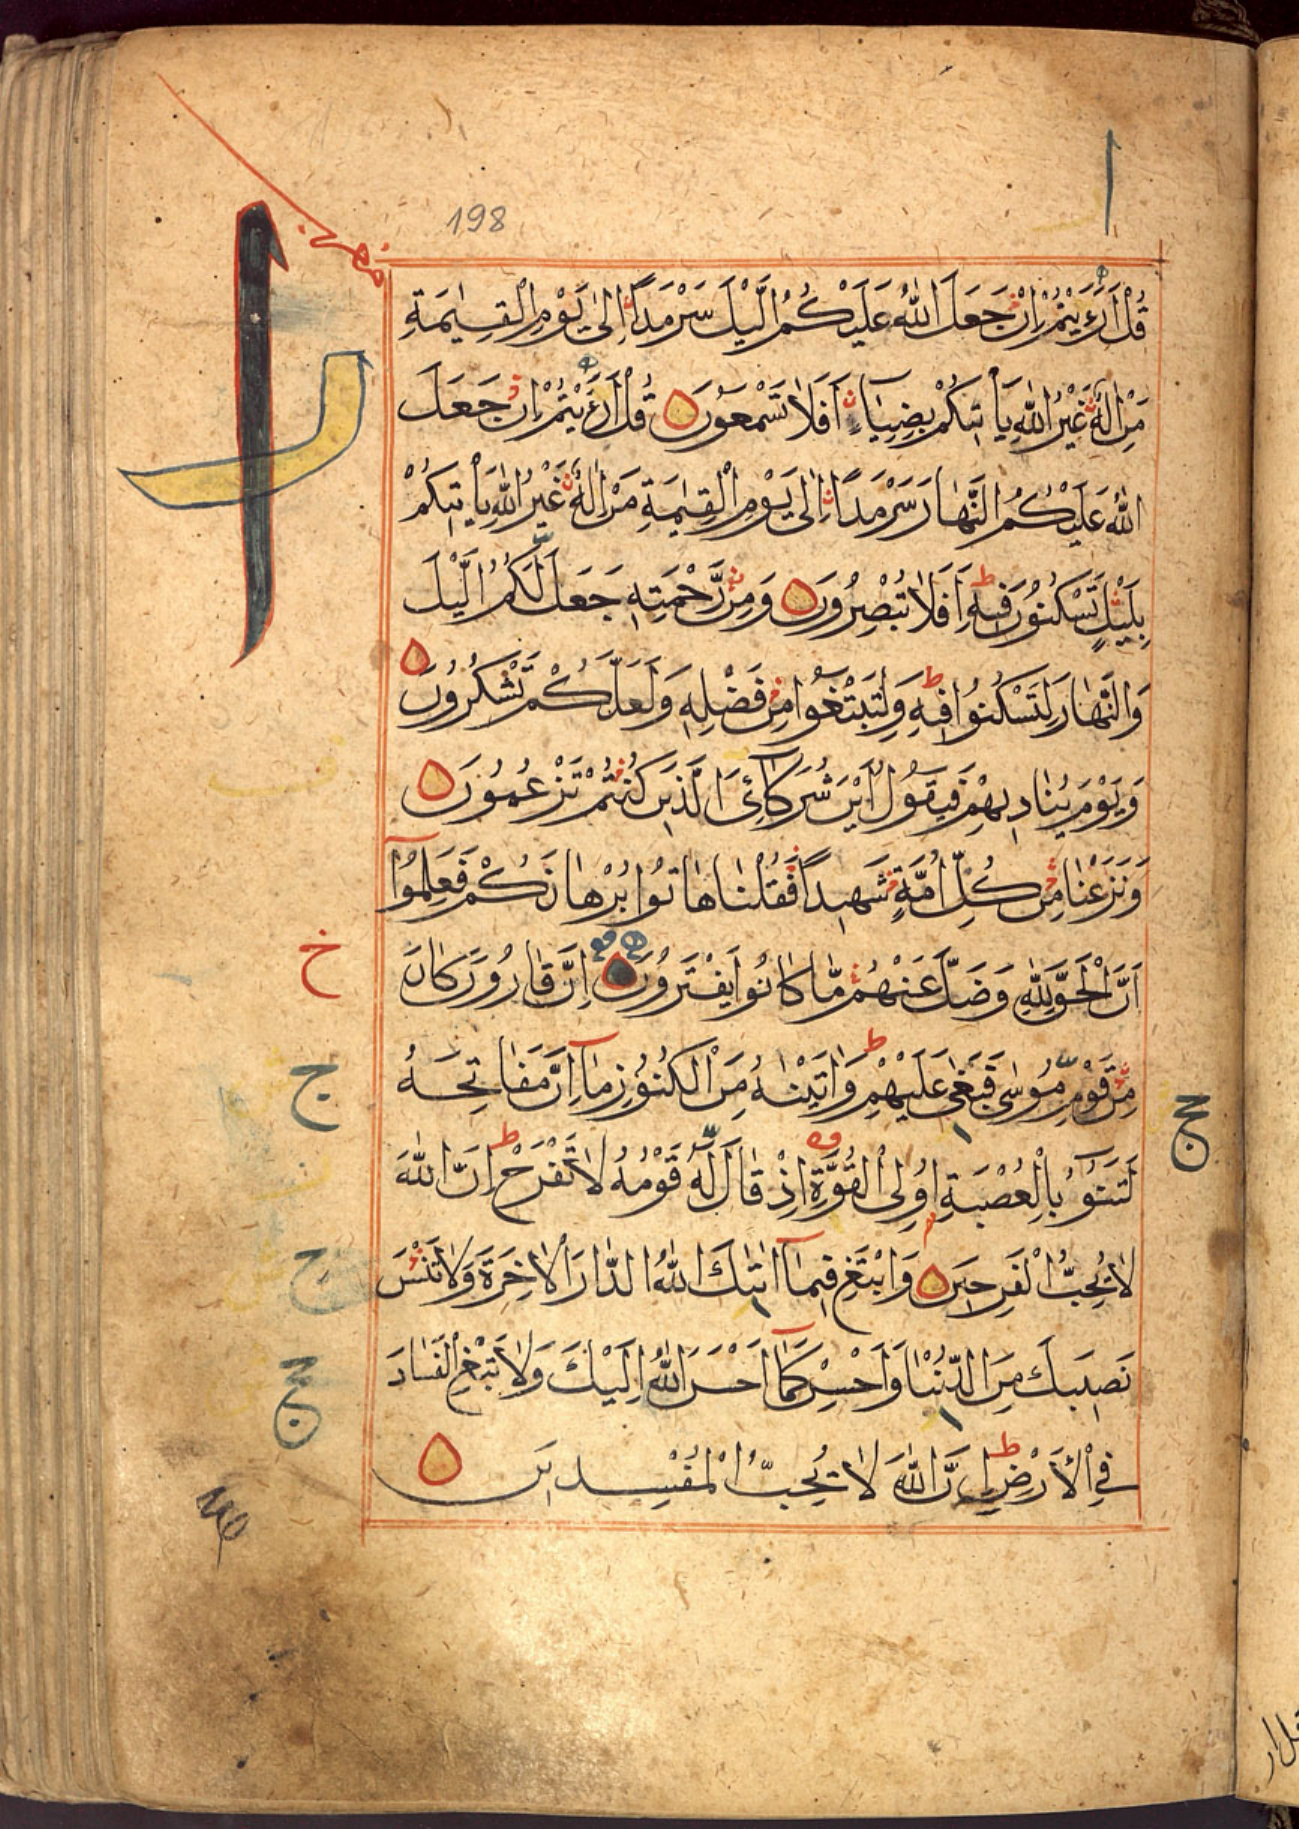 198
قُلْ أَرَءَيْتُمْ إِنْ جَعَلَ اللّٰهُ عَلَيْكُمُ الَّيْلَ سَرْمَدًا إِلٰى يَوْمِ الْقِيٰمَةِ
مَنْ إِلٰهٌ غَيْرُ اللّٰهِ يَأْتِيكُمْ بِضِيَاءٍ أَفَلَا تَسْمَعُونَ قُلْ أَرَءَيْتُمْ إِنْ جَعَلَ
اللّٰهُ عَلَيْكُمُ النَّهَارَ سَرْمَدًا إِلٰى يَوْمِ الْقِيٰمَةِ مَنْ إِلٰهٌ غَيْرُ اللّٰهِ يَأْتِيكُمْ
بِلَيْلٍ تَسْكُنُونَ فِيهِ أَفَلَا تُبْصِرُونَ وَمِنْ رَّحْمَتِهِ جَعَلَ لَكُمُ الَّيْلَ
وَالنَّهَارَ لِتَسْكُنُوا فِيهِ وَلِتَبْتَغُوا مِنْ فَضْلِهِ وَلَعَلَّكُمْ تَشْكُرُونَ
وَيَوْمَ يُنَادِيهِمْ فَيَقُولُ أَيْنَ شُرَكَآئِىَ الَّذِينَ كُنْتُمْ تَزْعُمُونَ
وَنَزَعْنَا مِنْ كُلِّ أُمَّةٍ شَهِيدًا فَقُلْنَا هَاتُوا بُرْهَانَكُمْ فَعَلِمُوٓا
أَنَّ الْحَقَّ لِلّٰهِ وَضَلَّ عَنْهُمْ مَّا كَانُوا يَفْتَرُونَ إِنَّ قَارُونَ كَانَ
مِنْ قَوْمِ مُوسٰى فَبَغٰى عَلَيْهِمْ وَاٰتَيْنٰهُ مِنَ الْكُنُوزِ مَآ إِنَّ مَفَاتِحَهُ
لَتَنُوٓءُ بِالْعُصْبَةِ أُولِى الْقُوَّةِ إِذْ قَالَ لَهُ قَوْمُهُ لَا تَفْرَحْ إِنَّ اللّٰهَ
لَا يُحِبُّ الْفَرِحِينَ وَابْتَغِ فِيمَآ اٰتٰىكَ اللّٰهُ الدَّارَ الْاٰخِرَةَ وَلَا تَنْسَ
نَصِيبَكَ مِنَ الدُّنْيَا وَأَحْسِنْ كَمَآ أَحْسَنَ اللّٰهُ إِلَيْكَ وَلَا تَبْغِ الْفَسَادَ
فِى الْأَرْضِ إِنَّ اللّٰهَ لَا يُحِبُّ الْمُفْسِدِينَ